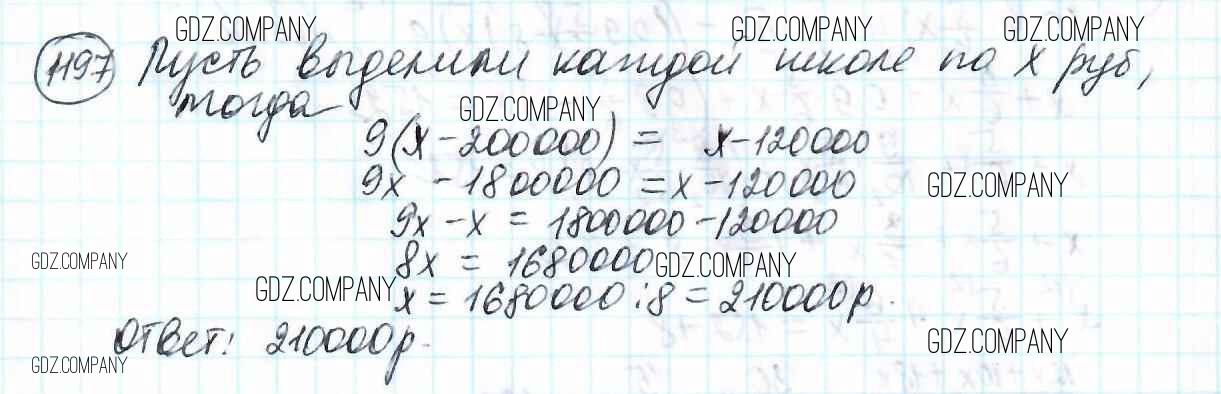 GDZ.COMPANY GDZ.COMPANY GDZ.COMPANY
1197 Пусть выделили каждой школе по х руб,
тогда
GDZ.COMPANY
9(х-200000) = х-120000
9х - 1800000 = х-120000
GDZ.COMPANY
9х - х = 1800000-120000
GDZ.COMPANY
8х = 1680000
GDZ.COMPANY
GDZ.COMPANY
х = 1680000:8 = 210000р.
Ответ: 210000р.
GDZ.COMPANY
GDZ.COMPANY